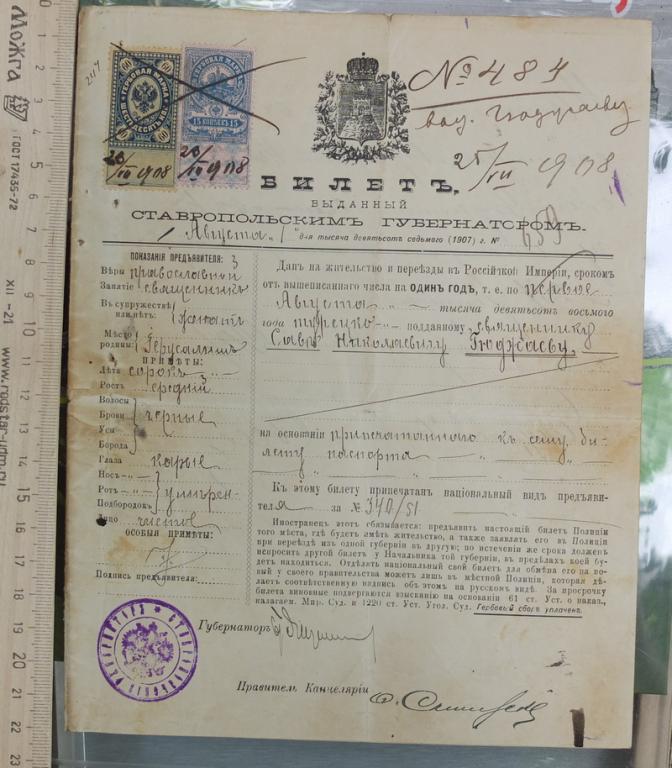 Можга
ГОСТ 17435-72
XII - 21
www.rodstar-udm.ru
0
1
2
3
4
5
6
7
8
9
10
11
12
13
14
15
16
17
18
19
20
21
22
23
60 60
ГЕРБОВАЯ МАРКА
60 60
15 КОПѢЕКЪ 15
20/VII 1908
20/VII 1908
№ 484
25/VII 1908
БИЛЕТЪ,
ВЫДАННЫЙ
СТАВРОПОЛЬСКИМЪ ГУБЕРНАТОРОМЪ.
Августа „1“ дня тысяча девятьсотъ седьмого (1907) г. № 659
ПОКАЗАНІЯ ПРЕДЪЯВИТЕЛЯ:
Вѣры православной
Занятіе священникъ
Въ супружествѣ или нѣтъ: женатъ
Мѣсто родины: Іерусалимъ
ПРИМѢТЫ:
Лѣта сорокъ
Ростъ средній
Волосы
Брови черные
Усы
Борода
Глаза карые
Носъ
Ротъ умѣрен-
Подбородокъ
Лицо чистое
ОСОБЫЯ ПРИМѢТЫ:
Подпись предъявителя:
Данъ на жительство и переѣзды въ Россійской Имперіи, срокомъ
отъ вышеписаннаго числа на ОДИНЪ ГОДЪ, т. е. по первое
Августа тысяча девятьсотъ восьмого
года турецко- подданному священнику
Савѣ Николаевичу Гюджаеву.
на основаніи припечатаннаго къ сему би-
лету паспорта
Къ этому билету припечатанъ національный видъ предъяви-
теля за № 340/51
Иностранецъ этотъ обязывается: предъявить настоящій билетъ Полиціи
того мѣста, гдѣ будетъ имѣть жительство, а также заявлять его въ Полиціи
при переѣздѣ изъ одной губерніи въ другую; по истеченіи же срока долженъ
испросить другой билетъ у Начальника той губерніи, въ предѣлахъ коей бу-
детъ находиться. Отдѣлять національный свой билетъ для обмѣна его на но-
вый у своего правительства можетъ лишь въ мѣстной Полиціи, которая дѣ-
лаетъ соотвѣтственную надпись объ этомъ на русскомъ видѣ. За просрочку
билета виновные подвергаются взысканію на основаніи 61 ст. Уст. о наказ.,
налагаем. Мир. Суд. и 1220 ст. Уст. Угол. Суд. Гербовый сборъ уплаченъ.
Губернаторъ
Правитель Канцеляріи